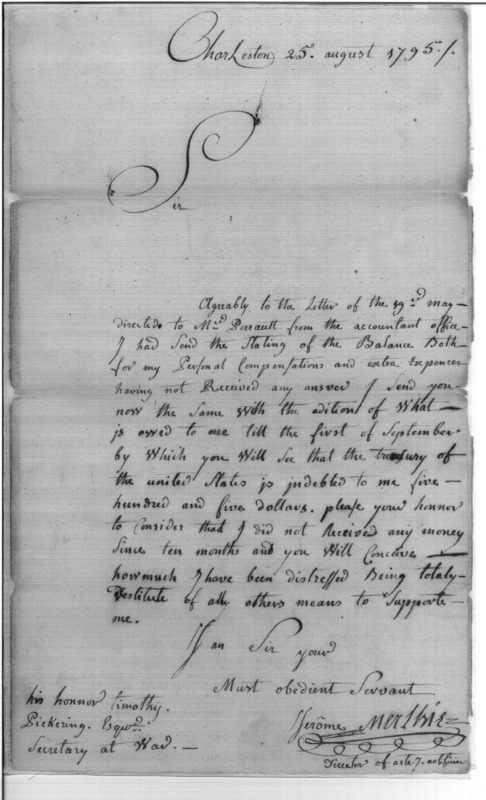 Charleston 25. august 1795./.
Sir
Agreably to the Letter of the 19.d may
directed to Mr. Perrault from the accountant office
I had Send the Stating of the Balance Both
for my Personal Compensations and extra Expences
having not Received any answer I Send you
now the Same With the adition of What
is owed to me till the first of September
by Which you Will See that the treasury of
the united States is indebted to me five
hundred and five dollars. please your honnor
to Consider that I did not Received any money
Since ten months and you Will Conceave
how much I have been distressed Being totaly
Destitute of all others means to Supporte
me.
I an Sir your
Must obedient Servant
his honnor timothy.
Pickering. Esqre.
Secretary at War.
Jerôme
Director of